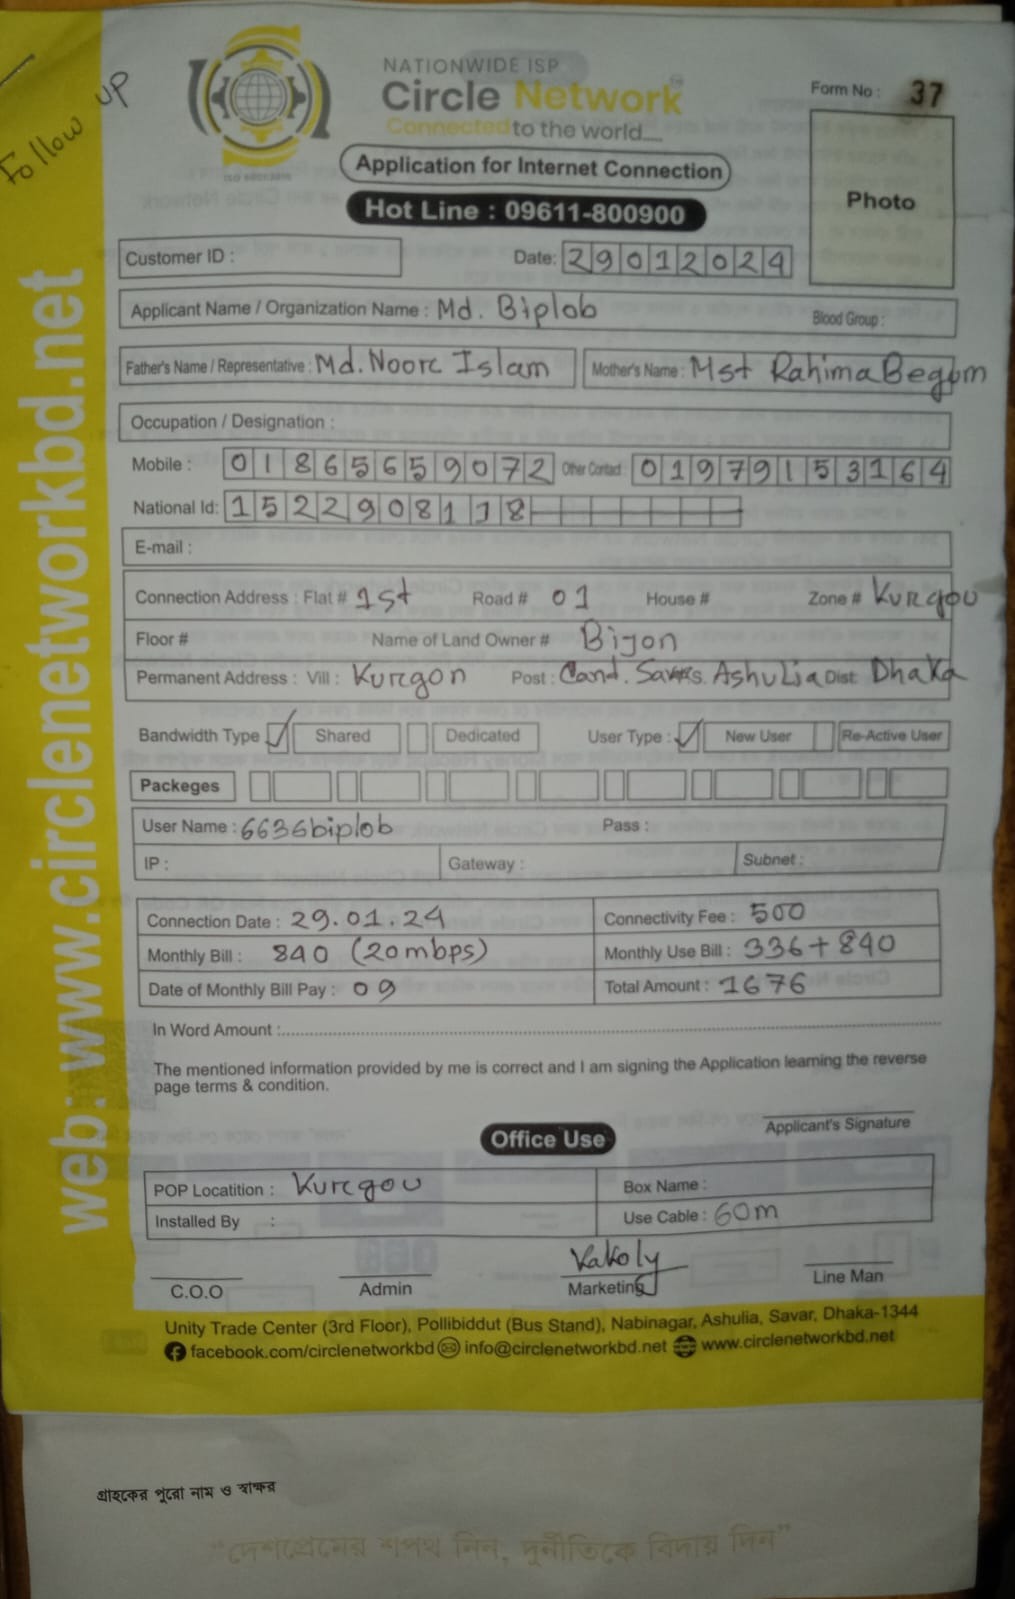 Follow UP
NATIONWIDE ISP
Circle Network
Connected to the world.....
Form No : 37
Application for Internet Connection
Photo
Hot Line : 09611-800900
Customer ID : Date: 29012024
Applicant Name / Organization Name : Md. Biplob Blood Group :
Father's Name / Representative : Md. Noore Islam Mother's Name : Mst Rahima Begum
Occupation / Designation :
Mobile : 01865659072 Other Contact : 01979153164
National Id: 1522908118
E-mail :
Connection Address : Flat # 1st Road # 01 House # Zone # Kurgou
Floor # Name of Land Owner # Bijon
Permanent Address : Vill : Kurgon Post : Cand. Ashulia Dist: Dhaka
Bandwidth Type Shared Dedicated User Type : New User Re-Active User
Packeges
User Name : 6636biplob Pass :
IP : Gateway : Subnet :
Connection Date : 29.01.24 Connectivity Fee : 500
Monthly Bill : 840 (20mbps) Monthly Use Bill : 336+840
Date of Monthly Bill Pay : 09 Total Amount : 1676
In Word Amount :
The mentioned information provided by me is correct and I am signing the Application learning the reverse
page terms & condition.
Applicant's Signature
Office Use
POP Locatition : Kurgou Box Name :
Installed By : Use Cable : 60m
Kakoly
C.O.O Admin Marketing Line Man
Unity Trade Center (3rd Floor), Pollibiddut (Bus Stand), Nabinagar, Ashulia, Savar, Dhaka-1344
facebook.com/circlenetworkbd info@circlenetworkbd.net www.circlenetworkbd.net
web: www.circlenetworkbd.net
গ্রাহকের পুরো নাম ও স্বাক্ষর
"দেশপ্রেমের শপথ নিন, দুর্নীতিকে বিদায় দিন"